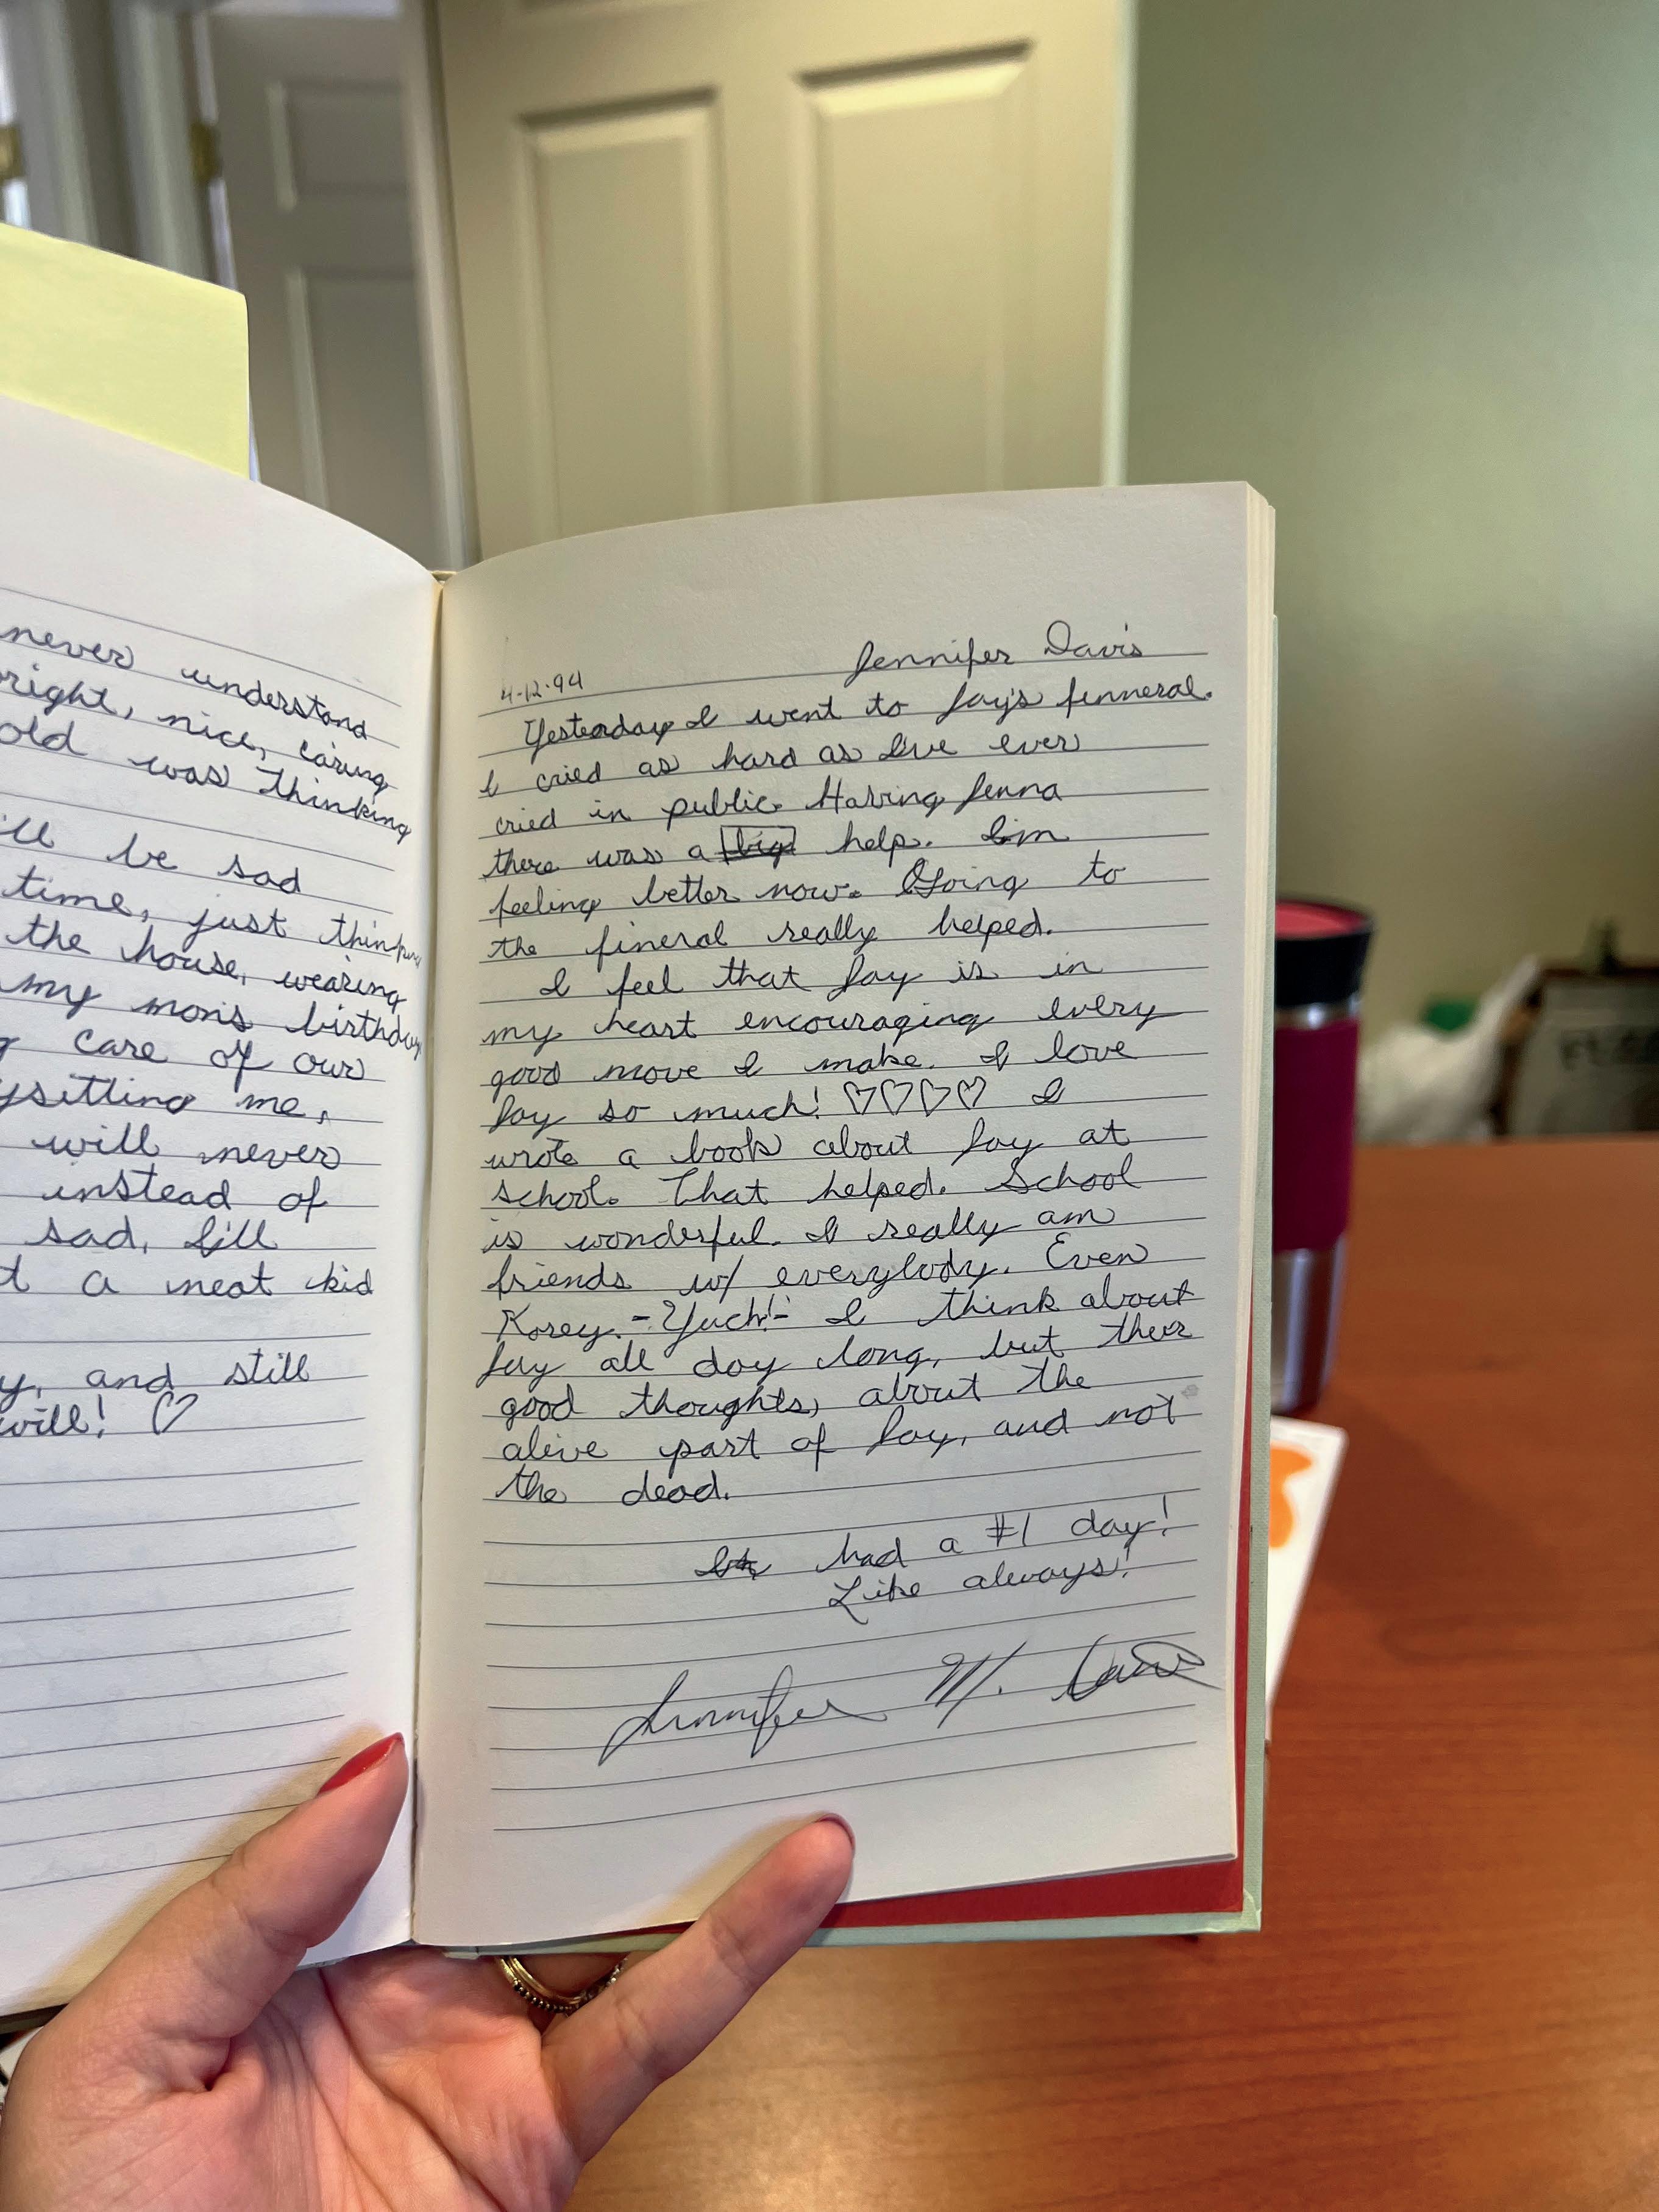 never understand
right, nice, caring
old was thinking
ill be sad
time, just thinking
the house, wearing
my mom's birthday
care of our
ysitting me,
will never
instead of
sad, I'll
t a neat kid
y, and still
will! ♡
Jennifer Davis
4-12-94
Yesterday I went to Jay's funneral.
I cried as hard as I've ever
cried in public. Having Jenna
there was a big help. I'm
feeling better now. Going to
the fineral really helped.
I feel that Jay is in
my heart encouraging every
good move I make. I love
Jay so much! ♡♡♡♡ I
wrote a book about Jay at
school. That helped. School
is wonderful. I really am
friends w/ everybody. Even
Korey. -Yuch!- I think about
Jay all day long, but their
good thoughts, about the
alive part of Jay, and not
the dead.
had a #1 day!
Like always!
Jennifer M. Davis